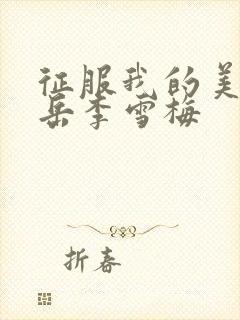 征服我的美
岳李雪梅
折春